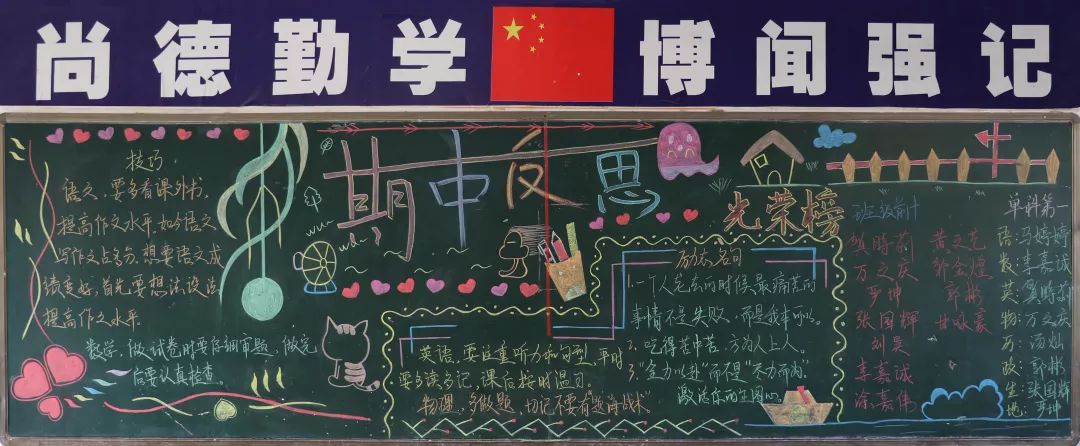 尚德勤学 博闻强记
期中反思
技巧
语文,要多看课外书,
提高作文水平,如今语文
写作文占多分,想要语文成
绩变好,首先要想法设法
提高作文水平.
数学,做试卷时要仔细审题,做完
后要认真检查.
英语,要注重听力和句型,平时
要多读多记,课后按时温习.
物理,多做题,切记不要有题海战术
励志名句
1.一个人老去的时候,最痛苦的
事情不是失败,而是我本可以.
2.吃得苦中苦,方为人上人.
3."全力以赴"而不是"尽力而为"
光荣榜
班级前十
龚时莉
万文庆
罗坤
张国辉
刘昊
李嘉诚
涂嘉伟
黄文艺
郭金煌
郭彬
甘咏豪
单科第一
语:马婷婷
数:李嘉诚
英:龚时莉
物:万文庆
历:汤灿
政:郭彬
生:张国辉
地:罗坤